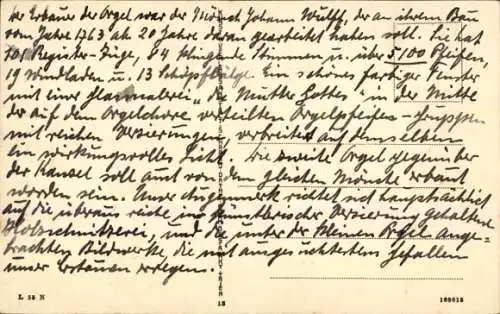 Der Erbauer der Orgel war der Mönch Johann Wulff, der an ihrem Bau
vom Jahre 1763 ab 20 Jahre daran gearbeitet haben soll. Sie hat
101 Register-Züge, 84 klingende Stimmen u. über 5100 Pfeifen,
19 Windladen u. 13 Schöpfbälge. Ein schönes farbiger Fenster
mit einer Glasmalerei „die Mutter Gottes" in der Mitte
der auf dem Orgelchore verteilten Orgelpfeifen-Gruppen
mit reichen Verzierungen, verbreitet auf denselben
ein wirkungsvolles Licht. Die zweite Orgel gegenüber
der Kanzel soll auch von dem gleichen Mönche erbaut
worden sein. Unser Augenmerk richtet sich hauptsächlich
auf die überaus reiche in künstlerischer Verzierung gehaltene
Holzschnitzerei, und die unter der kleinen Orgel ange-
brachten Bildwerke, die mit ausgesuchtestem Gefallen
unser Erstaunen erregen.
L 55 N
18
166615